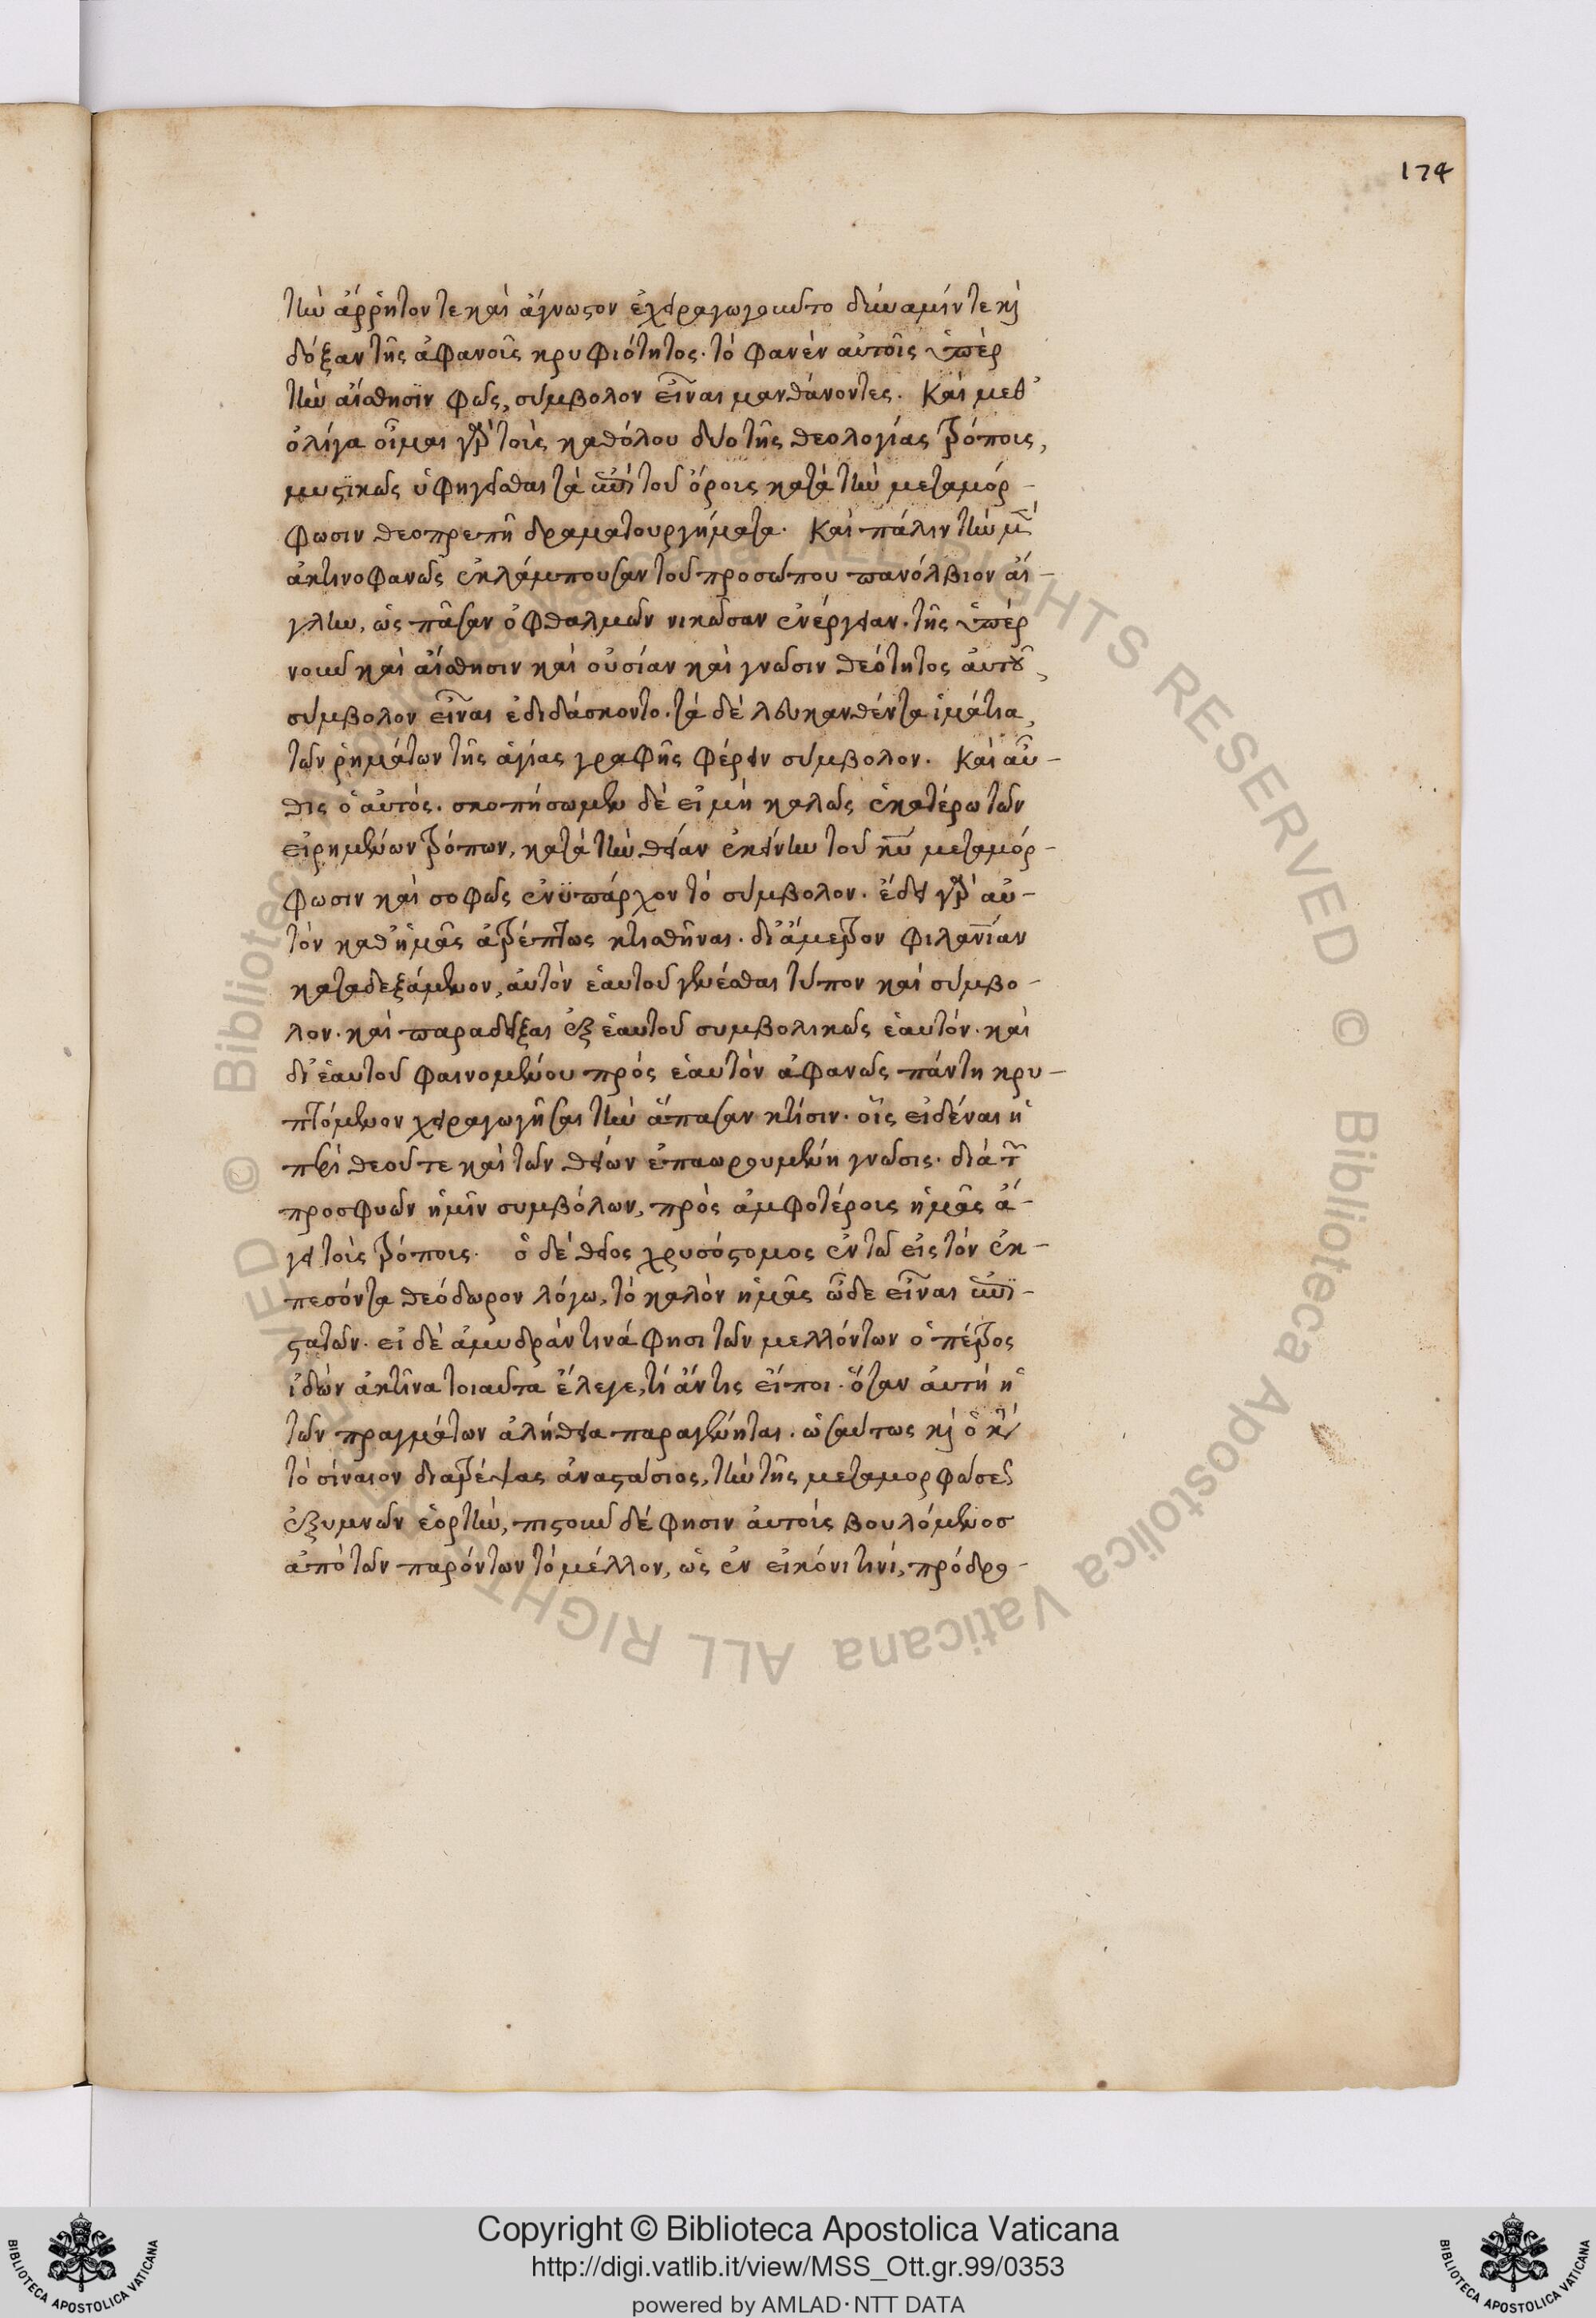 174
τὴν ἄρρητόν τε καὶ ἄγνωστον ἐχειραγωγοῦντο δύναμίν τε κ̀
δόξαν τῆς ἀφανοῦς κρυφιότητος· τὸ φανὲν αὐτοῖς ὑπὲρ
τὴν αἴσθησιν φῶς, σύμβολον εἶναι μανθάνοντες. Καὶ μεθ'
ὀλίγα οἶμαι γὰρ τοὺς καθόλου δύο τῆς θεολογίας τρόπους,
μυστικῶς ὑφηγεῖσθαι τὰ ἐπὶ τοῦ ὄρους κατὰ τὴν μεταμόρ-
φωσιν θεοπρεπῆ δραματουργήματα. Καὶ πάλιν τὴν μὲν
ἀκτινοφανῶς ἐκλάμπουσαν τοῦ προσώπου πανόλβιον αἴ-
γλην, ὡς πᾶσαν ὀφθαλμῶν νικῶσαν ἐνέργειαν· τῆς ὑπὲρ
νοῦν καὶ αἴσθησιν καὶ οὐσίαν καὶ γνῶσιν θεότητος αὐτοῦ,
σύμβολον εἶναι ἐδιδάσκοντο· τὰ δὲ λευκανθέντα ἱμάτια,
τῶν ῥημάτων τῆς ἁγίας γραφῆς φέρειν σύμβολον. Καὶ αὖ-
θις ὁ αὐτός. σκοπήσωμεν δὲ εἰ μὴ καλῶς ἑκατέρω τῶν
εἰρημένων τρόπων, κατὰ τὴν θείαν ἐκείνην τοῦ κῦ μεταμόρ-
φωσιν καὶ σοφῶς ἐνϋπάρχον τὸ σύμβολον. ἔδει γὰρ αὐ-
τὸν καθ' ἡμᾶς ἀτρέπτως κτισθῆναι· δι' ἄμετρον φιλανίαν
καταδεξάμενον, αὐτὸν ἑαυτοῦ γενέσθαι τύπον καὶ σύμβο-
λον· καὶ παραδεῖξαι ἐξ ἑαυτοῦ συμβολικῶς ἑαυτόν· καὶ
δι' ἑαυτοῦ φαινομένου πρὸς ἑαυτὸν ἀφανῶς πάντη κρυ-
πτόμενον χειραγωγῆσαι τὴν ἅπασαν κτίσιν. οἷς εἰδέναι ἡ
περὶ θεοῦ τε καὶ τῶν θείων ἐπαωρουμένη γνῶσις· διὰ τ
προσφυῶν ἡμῖν συμβόλων, πρὸς ἀμφοτέροις ἡμᾶς ἄ-
γει τοῖς τρόποις. ὁ δὲ θεῖος χρυσόστομος ἐν τῶ εἰς τὸν ἐκ-
πεσόντα θεόδωρον λόγω, τὸ καλὸν ἡμᾶς ὧδε εἶναι ἐπϊ-
στατῶν· εἰ δὲ ἀμυδράν τινά φησι τῶν μελλόντων ὁ πέτρος
ἰδὼν ἀκτῖνα τοιαῦτα ἔλεγε, τί ἄν τις εἴποι· ὅταν αὐτὴ ἡ
τῶν πραγμάτων ἀλήθεια παραγένηται. ὡσαύτως κ̀ ὁ κτ
τὸ σίναιον διατρέψας ἀναστάσιος, τὴν τῆς μεταμορφώσεως
ἐξυμνῶν ἑορτὴν, πιστοῦν δέ φησιν αὐτοὺς βουλόμενος
ἀπὸ τῶν παρόντων τὸ μέλλον, ὡς ἐν εἰκόνι τινί, πρόδρο-
© Biblioteca Apostolica Vaticana ALL RIGHTS RESERVED
Copyright © Biblioteca Apostolica Vaticana
http://digi.vatlib.it/view/MSS_Ott.gr.99/0353
powered by AMLAD·NTT DATA
BIBLIOTECA APOSTOLICA VATICANA
BIBLIOTECA APOSTOLICA VATICANA